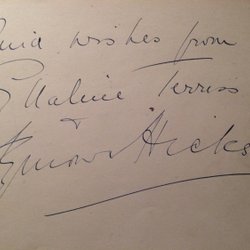 Kind wishes from
Ellaline Terriss
+
Seymour Hicks